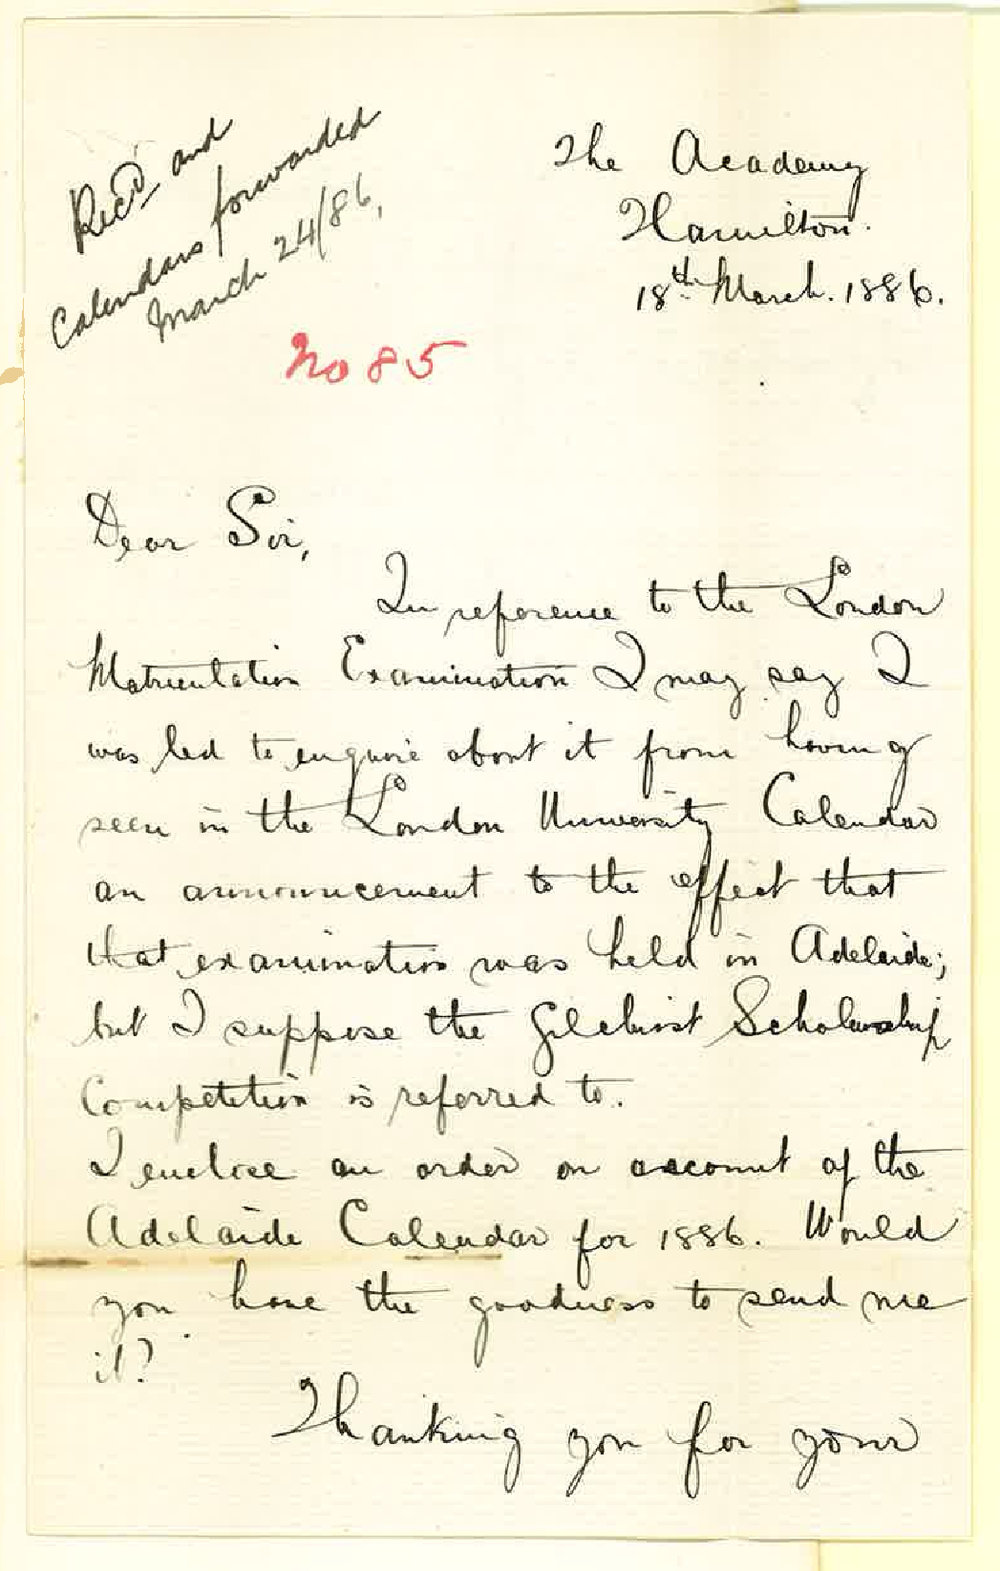 Rec'd and
Calendars forwarded
March 24/86,
The Academy
Hamilton.
18th March. 1886.
No 85
Dear Sir,
In reference to the London
Matriculation Examination I may say I
was led to enquire about it from having
seen in the London University Calendar
an announcement to the effect that
that examination was held in Adelaide;
but I suppose the Gilchrist Scholarship
Competition is referred to.
I enclose an order on account of the
Adelaide Calendar for 1886. Would
you have the goodness to send me
it?
Thanking you for your